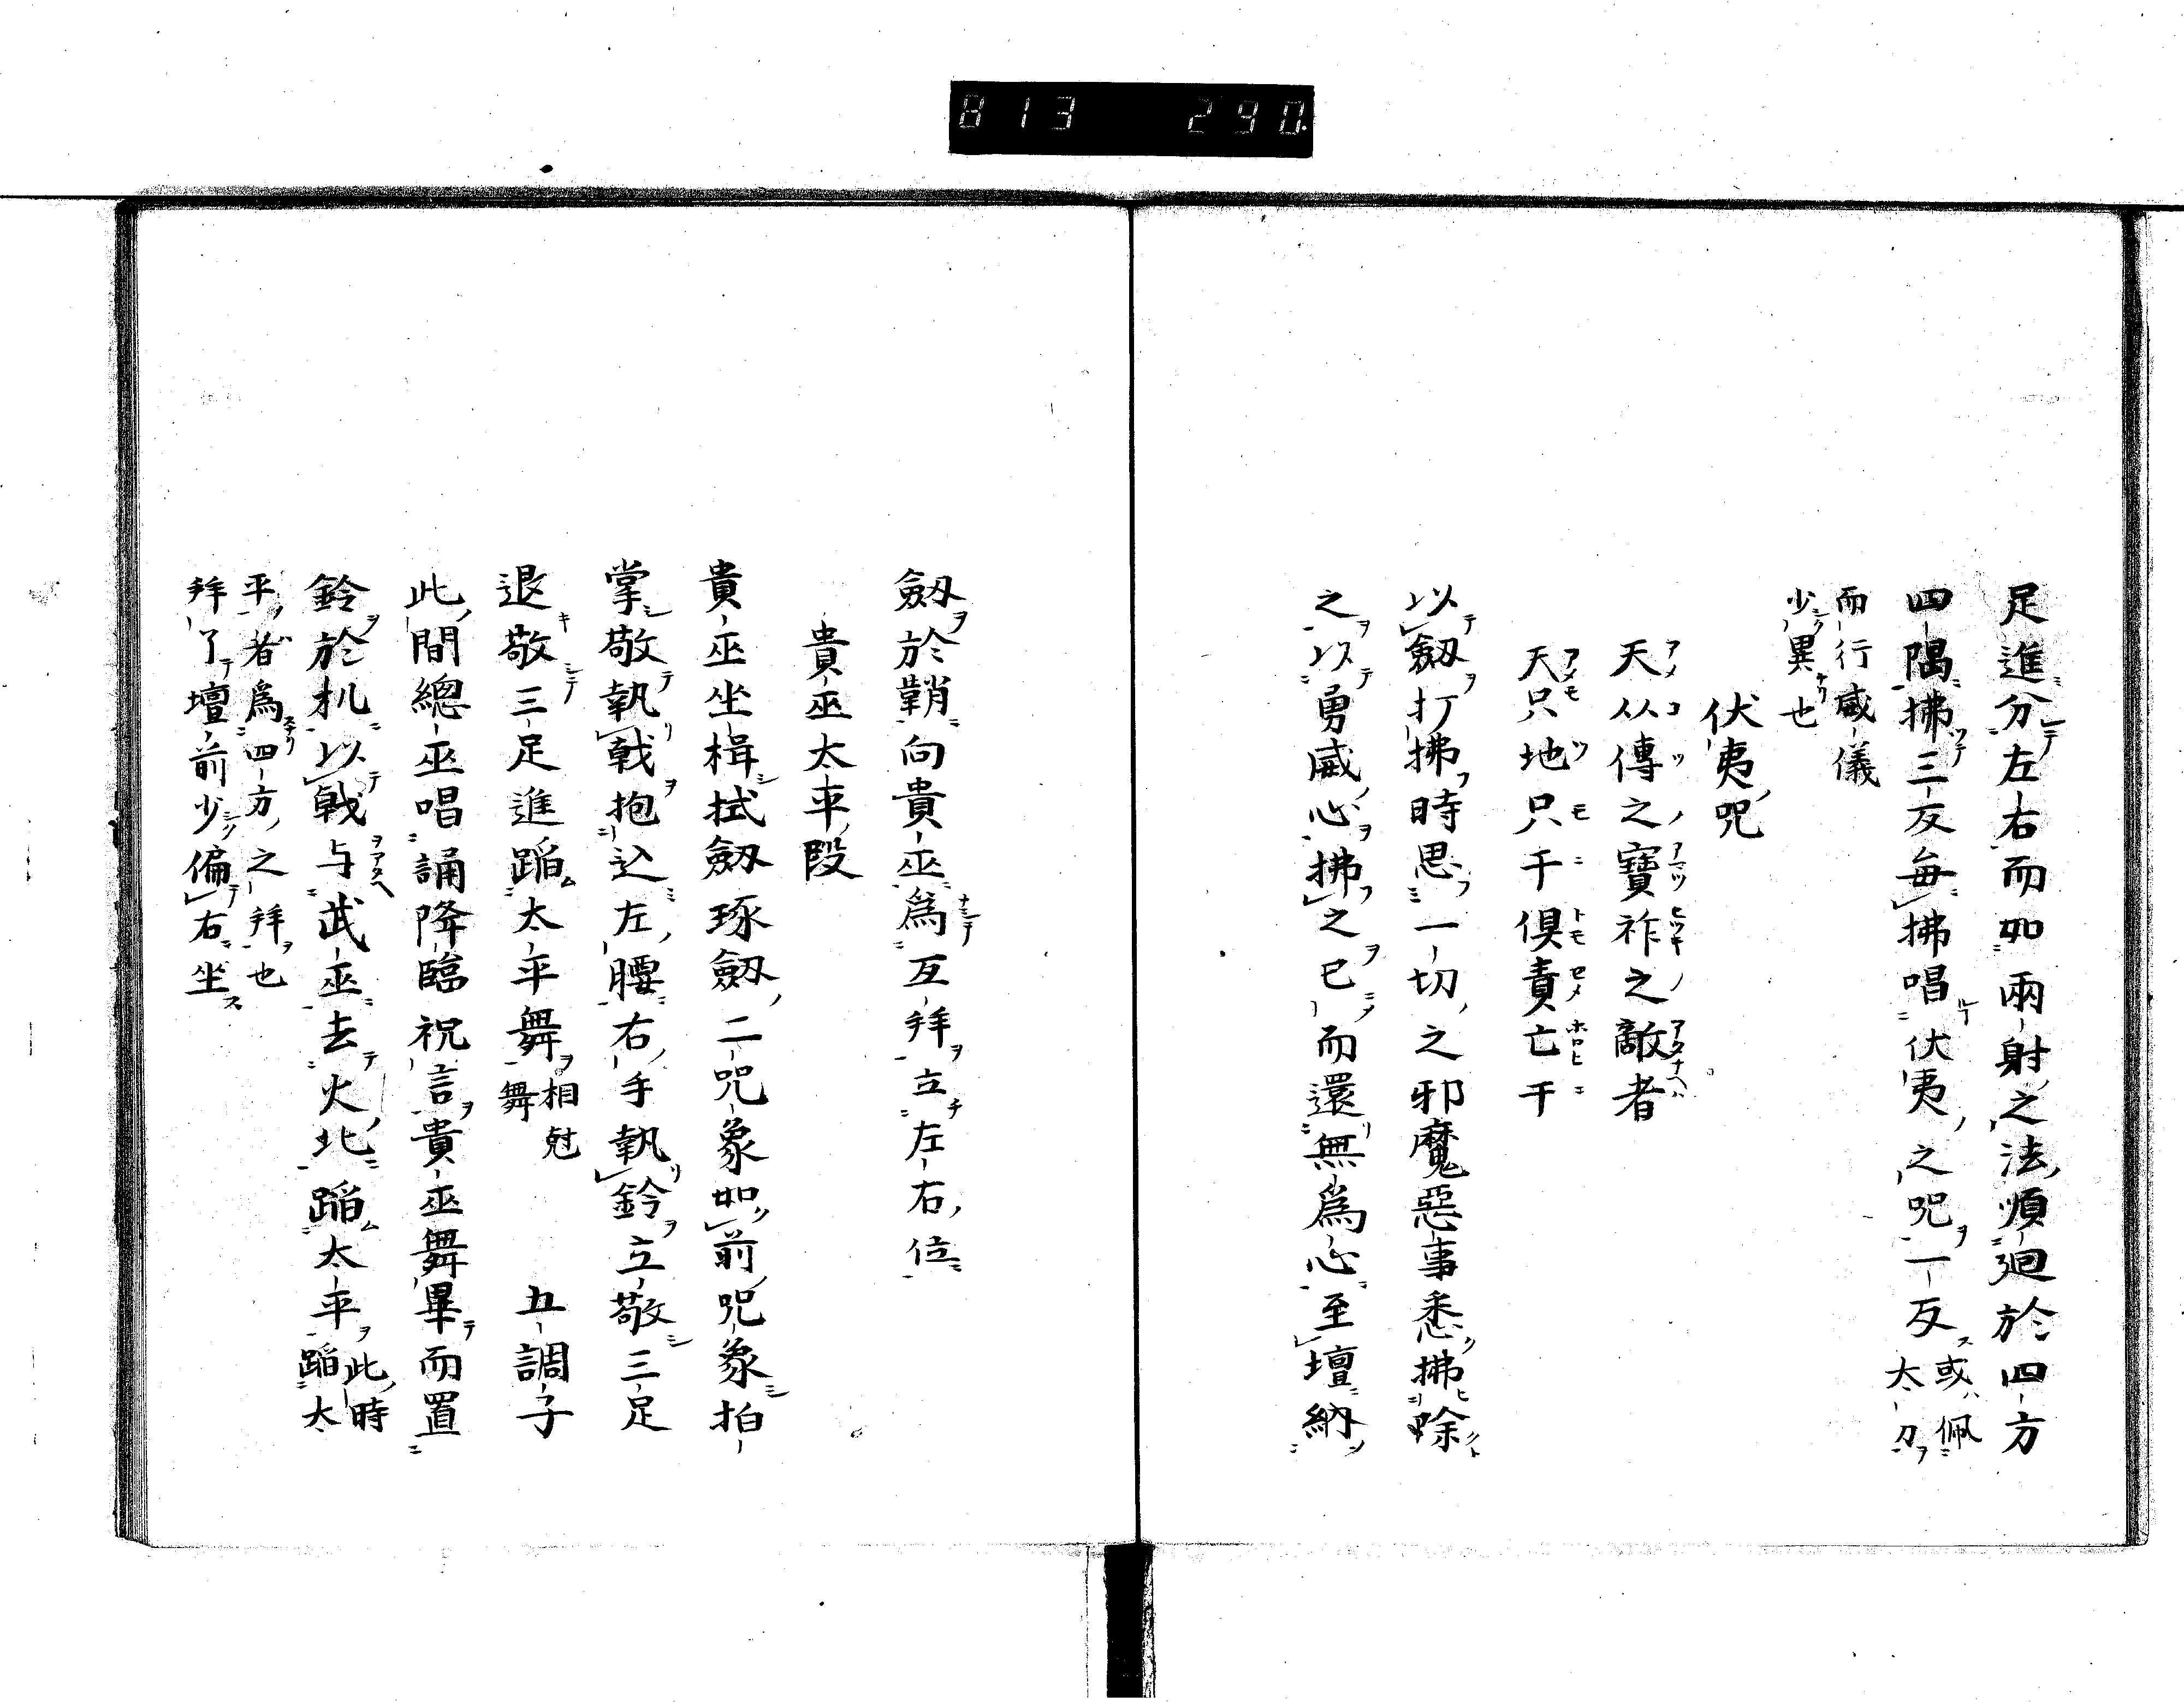 813 290.
足進分左右而如兩射之法順廻於四方
四隅拂三反毎拂唱伏夷之咒一反
或佩
太刀
而行威儀
少異也
伏夷咒
天从傳之寶祚之敵者
天只地只干倶責亡干
以劔打拂時思一切之邪魔惡事悉拂除
之以勇威心拂之已而還無爲心至壇納
劔於鞘向貴巫爲互拜立左右位
貴巫太平段
貴巫坐楫拭劔琢劔二咒象如前咒象拍
掌敬執戟抱込左腰右手執鈴立敬三足
退敬三足進蹈太平舞
相尅
舞
五調子
此間總巫唱誦降臨祝言貴巫舞畢而置
鈴於机以戟与武巫去火北蹈太平
此時
蹈太
平者爲四方之拜也
拜了壇前少偏右坐